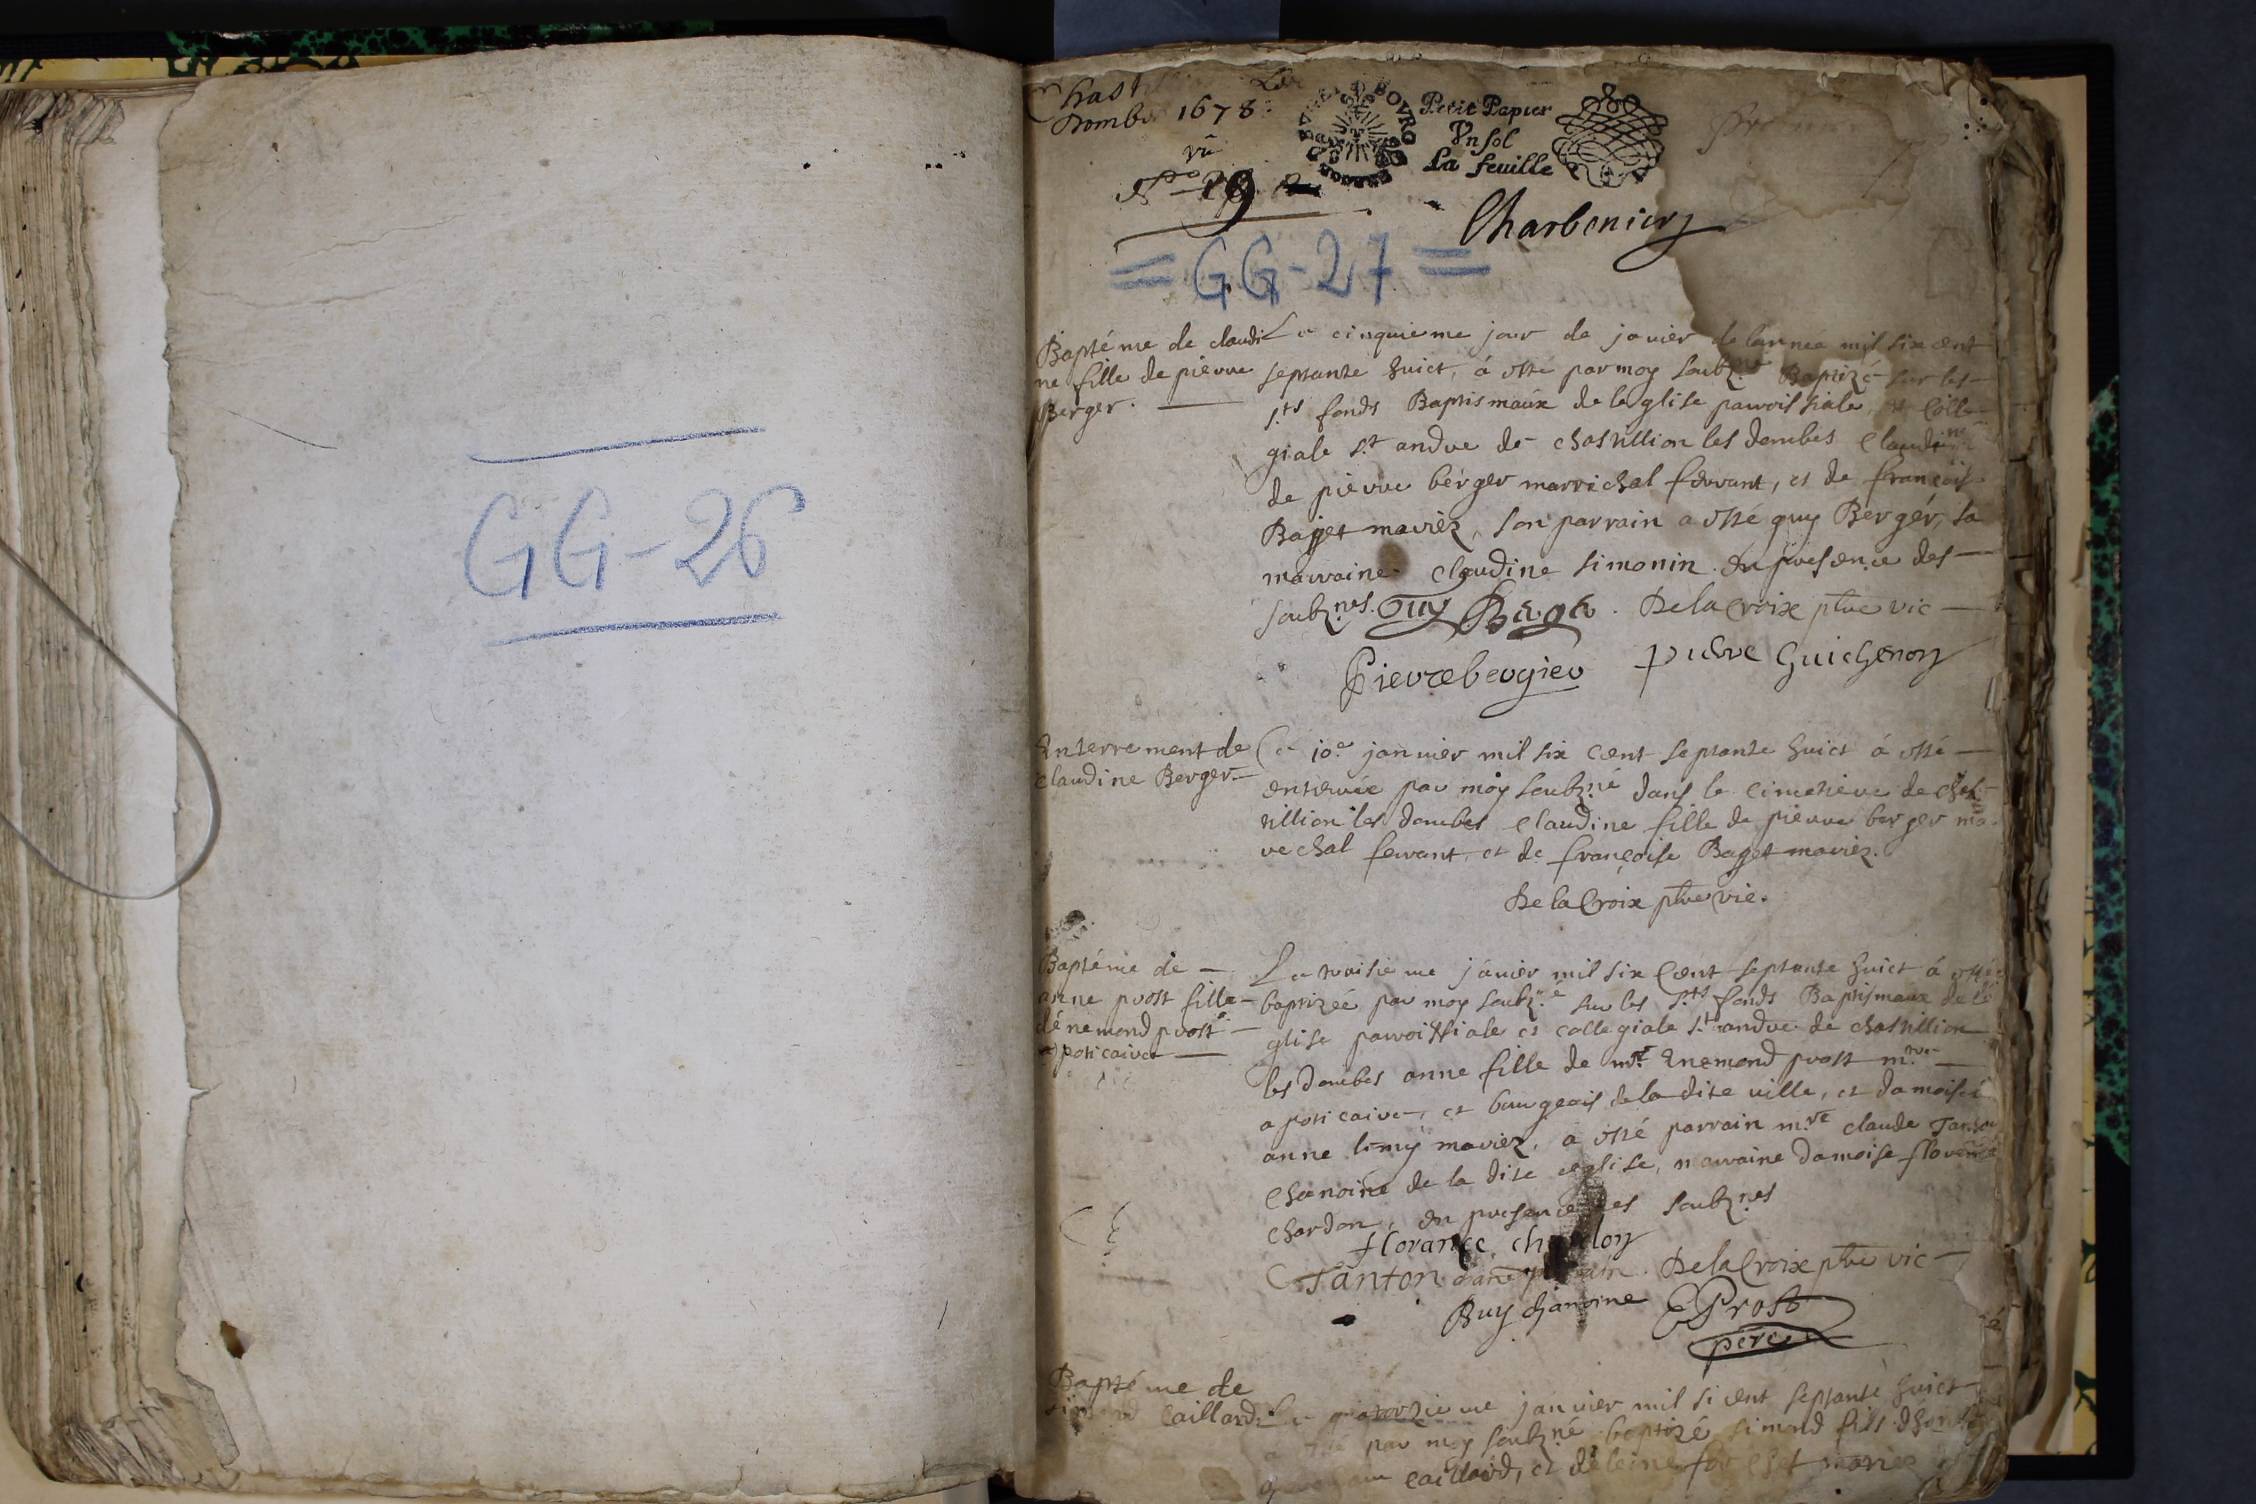 GG-26
Chast
Dombes 1678
Petit Papier
Vn sol
La feuille
Charbonier
= GG-27 =
Baptéme de claudi
ne fille de pierre
Berger.
Le cinquieme jour de javier de lannee mil six cent
septante huict, á esté par moy soubz.né Baptizé sur les
s.ts fonds Baptismaúx de leglise parroissiale, et Colle
giale s.t andre de chastillion les dombes Claudine
de pierre berger marrichal ferrant, et de françoise
Baget mariéz, son parrain a esté guy Bergér, sa
marraine claudine simonin. en presence des
soubz.nes. Guy Berger. De la Croix ptre vic
Pierre bergier pierre Guichenon
Enterrement de
claudine Berger
Le 10.e janvier mil six cent septante huict á esté
enterrée par moy soubz.né dans le cimetiere de chas
tillion les dombes claudine fille de pierre berger ma
rechal ferrant, et de françoise Baget mariéz.
De la Croix ptre vic.
Baptéme de
anne prost fille
dénemond prost
apoticaire
Le troisieme jávier mil six Cent septante huict á esté
baptizeé par moy soubz.né sur les s.ts fonds Baptismaux de lé
glise parroissiale et collegiale s.t andre de chastillion
les dombes anne fille de m.re Enemond prost m.re
apoticaire, et bourgeois de la dite ville, et damoiselle
anne mariéz, á esté parrain m.re claude Tanton
Chanoine de la dite eglise, marraine damoise florence
chardon, en presence des soubz.nes
florance chardon
Tanton parrain. De la Croix ptre vic
Buy chanoine E Prost
pere
Baptéme de
simond Caillard
Le quatorzieme janvier mil si cent septante huict
a esté par moy soubz.né baptizé simond fils
caillard, et mariéz